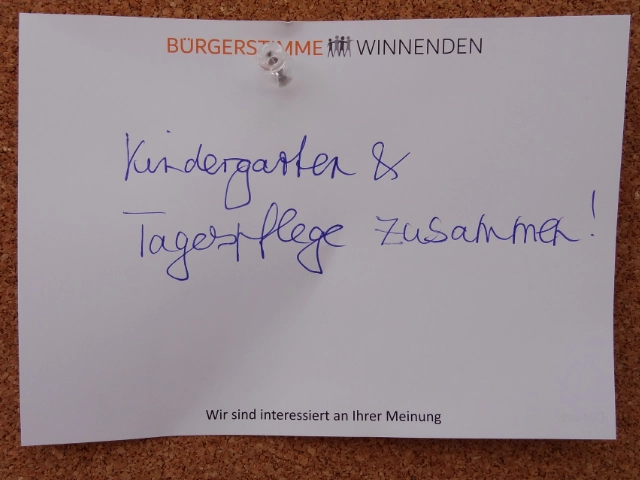 BÜRGERSTIMME WINNENDEN
Kindergarten &
Tagespflege zusammen!
Wir sind interessiert an Ihrer Meinung